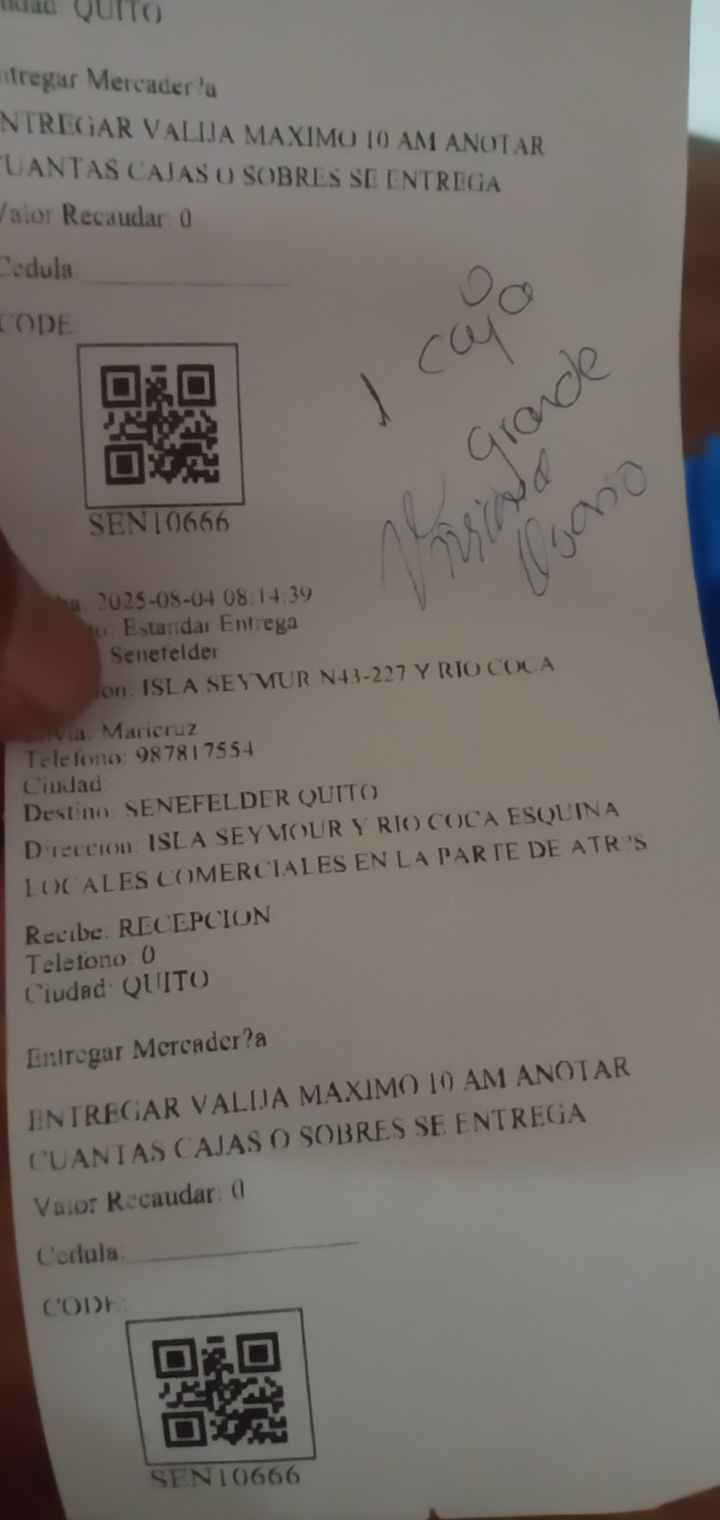 QUITO
Mercader?a
ENTREGAR VALIJA MAXIMO 10 AM ANOTAR
CUANTAS CAJAS O SOBRES SE ENTREGA
Valor Recaudar: 0
Cedula
CODE
1 caja
grande
SEN10666
2025-08-04 08:14:39
Estandar Entrega
Senefelder
ISLA SEYMUR N43-227 Y RIO COCA
Maricruz
Telefono: 987817554
Ciudad
Destino: SENEFELDER QUITO
Direccion: ISLA SEYMOUR Y RIO COCA ESQUINA
LOCALES COMERCIALES EN LA PARTE DE ATR?S
Recibe: RECEPCION
Telefono: 0
Ciudad: QUITO
Entregar Mercader?a
ENTREGAR VALIJA MAXIMO 10 AM ANOTAR
CUANTAS CAJAS O SOBRES SE ENTREGA
Valor Recaudar: 0
Cedula:
CODE:
SEN10666